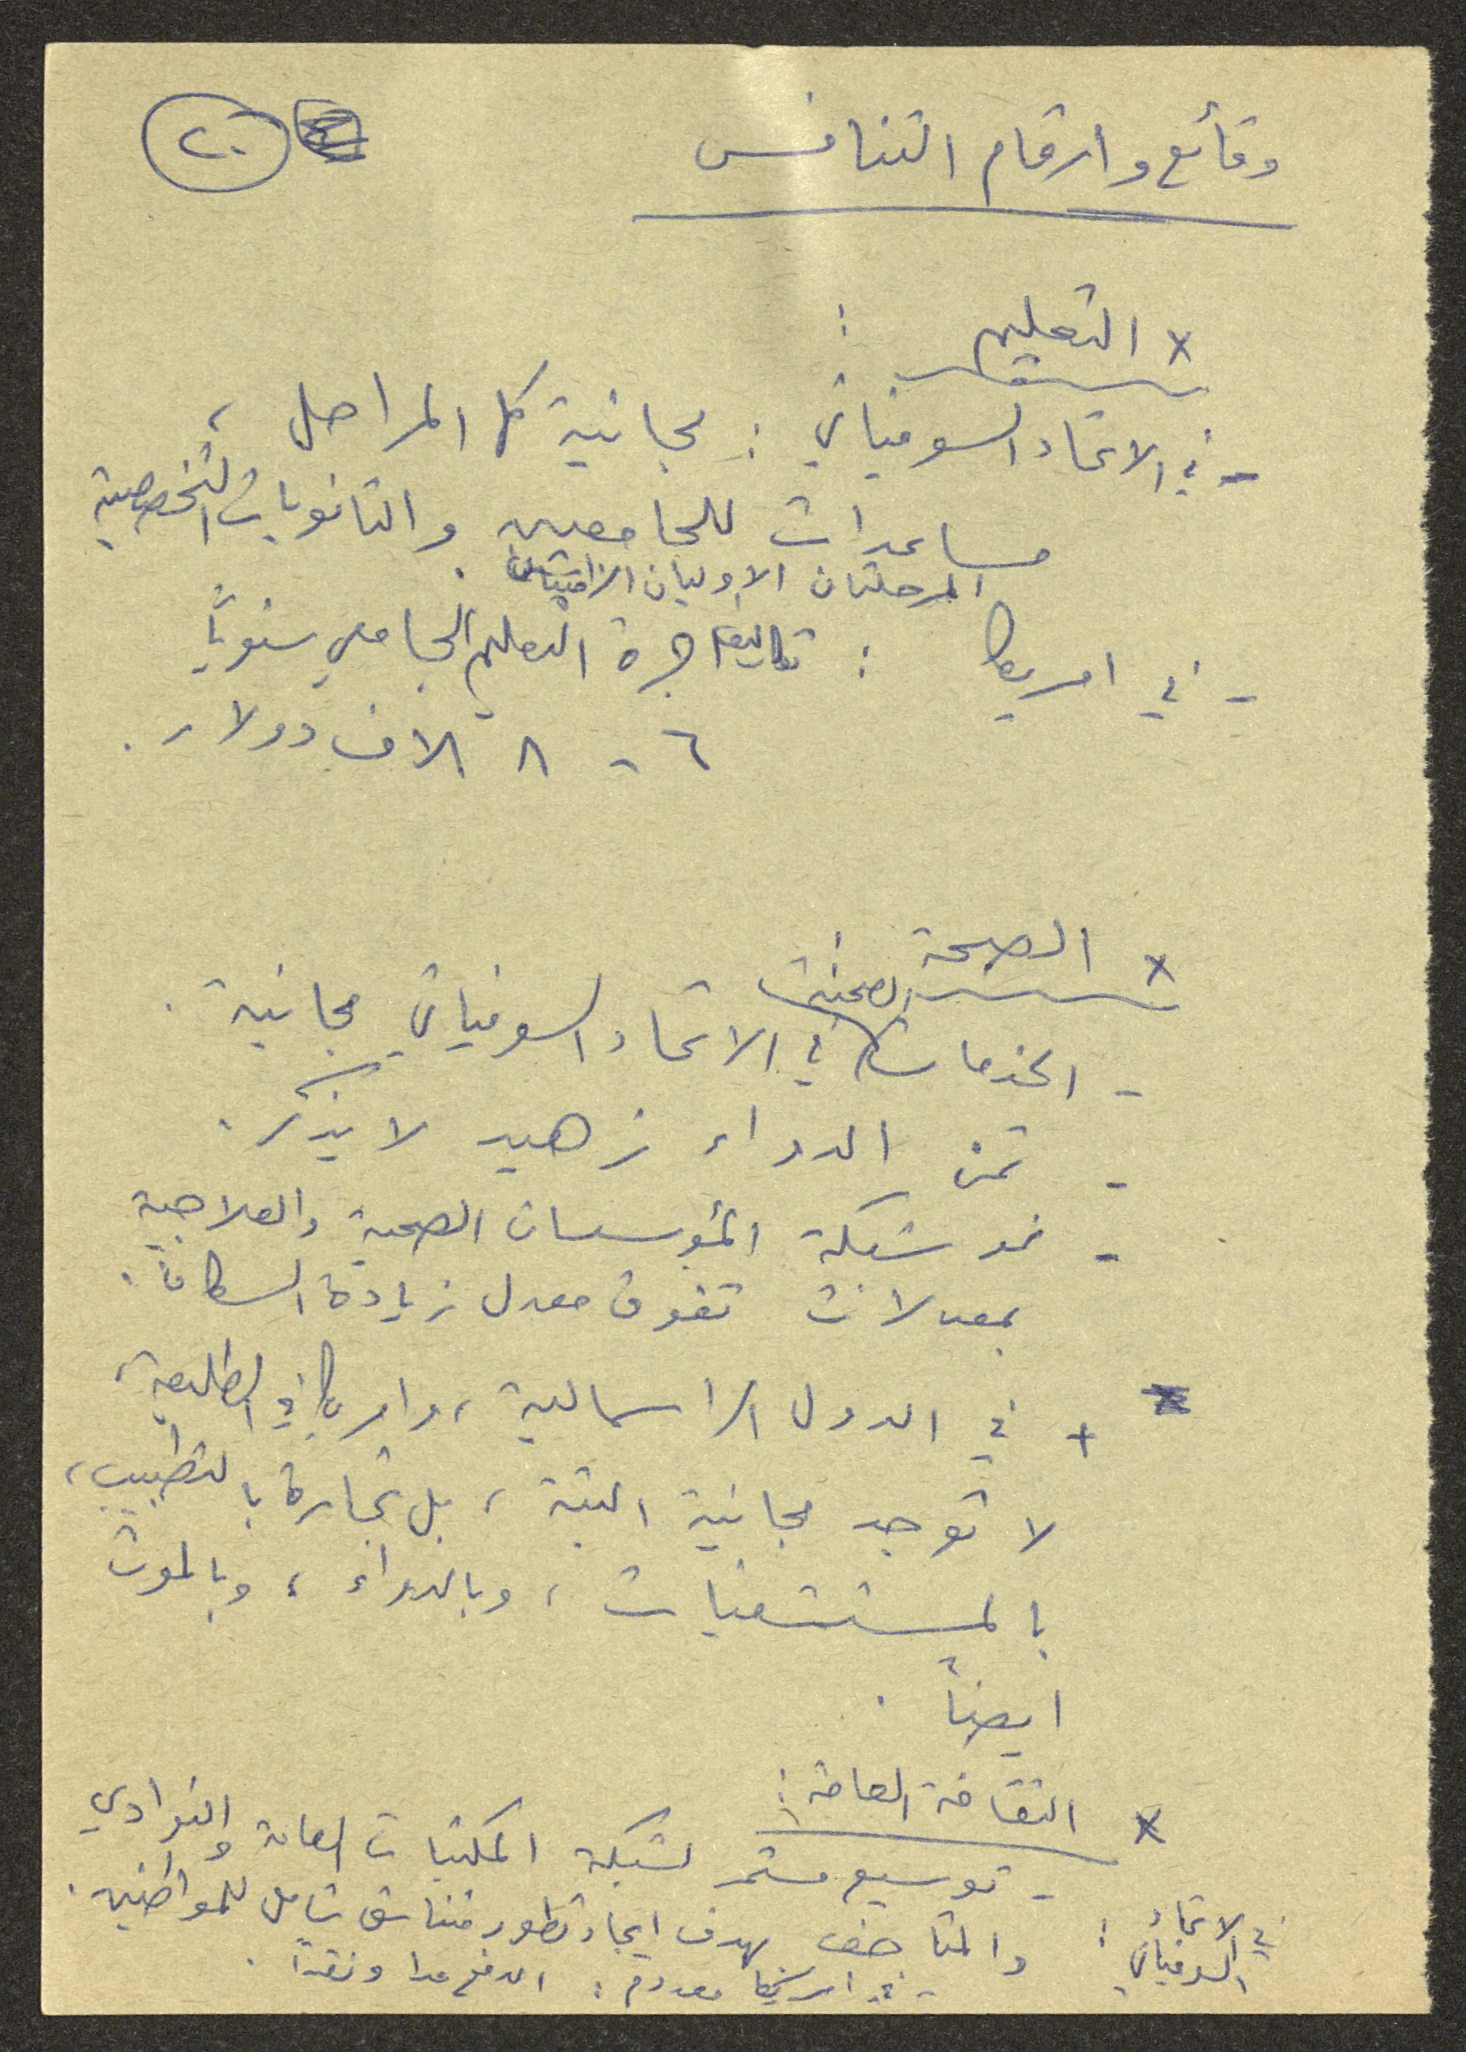 وقائع وارقام التنافس
٢٠
× التعليم :
- في الاتحاد السوفياتي : مجانية كل المراحل ،
مساعدات للجامعيين والثانويات التخصصية
المرحلتان الاوليان الزاميتان
- في امريكا : تكاليف اجرة التعليم الجامعي سنوياً
٦ - ٨ الاف دولار .
× الصحة
- الخدمات الصحية في الاتحاد السوفياتي مجانية .
- ثمن الدواء زهيد لا يذكر .
- نمو شبكة المؤسسات الصحية والعلاجية
بمعدلات تفوق معدل زيادة السكان .
+ في الدول الراسمالية ، وامريكا في الطليعة ،
لا توجد مجانية البتة ، بل تجارة بالتطبيب ،
بالمستشفيات ، وبالدواء ، وبالموت
ايضاً .
× الثقافة العامة :
- توسيع مستمر لشبكة المكتبات العامة والنوادي
في الاتحاد السوفياتي : والمتاحف بهدف ايجاد تطور متناسق شامل للمواطنين .
- في امريكا معدوم : الدفع عدا ونقدا .